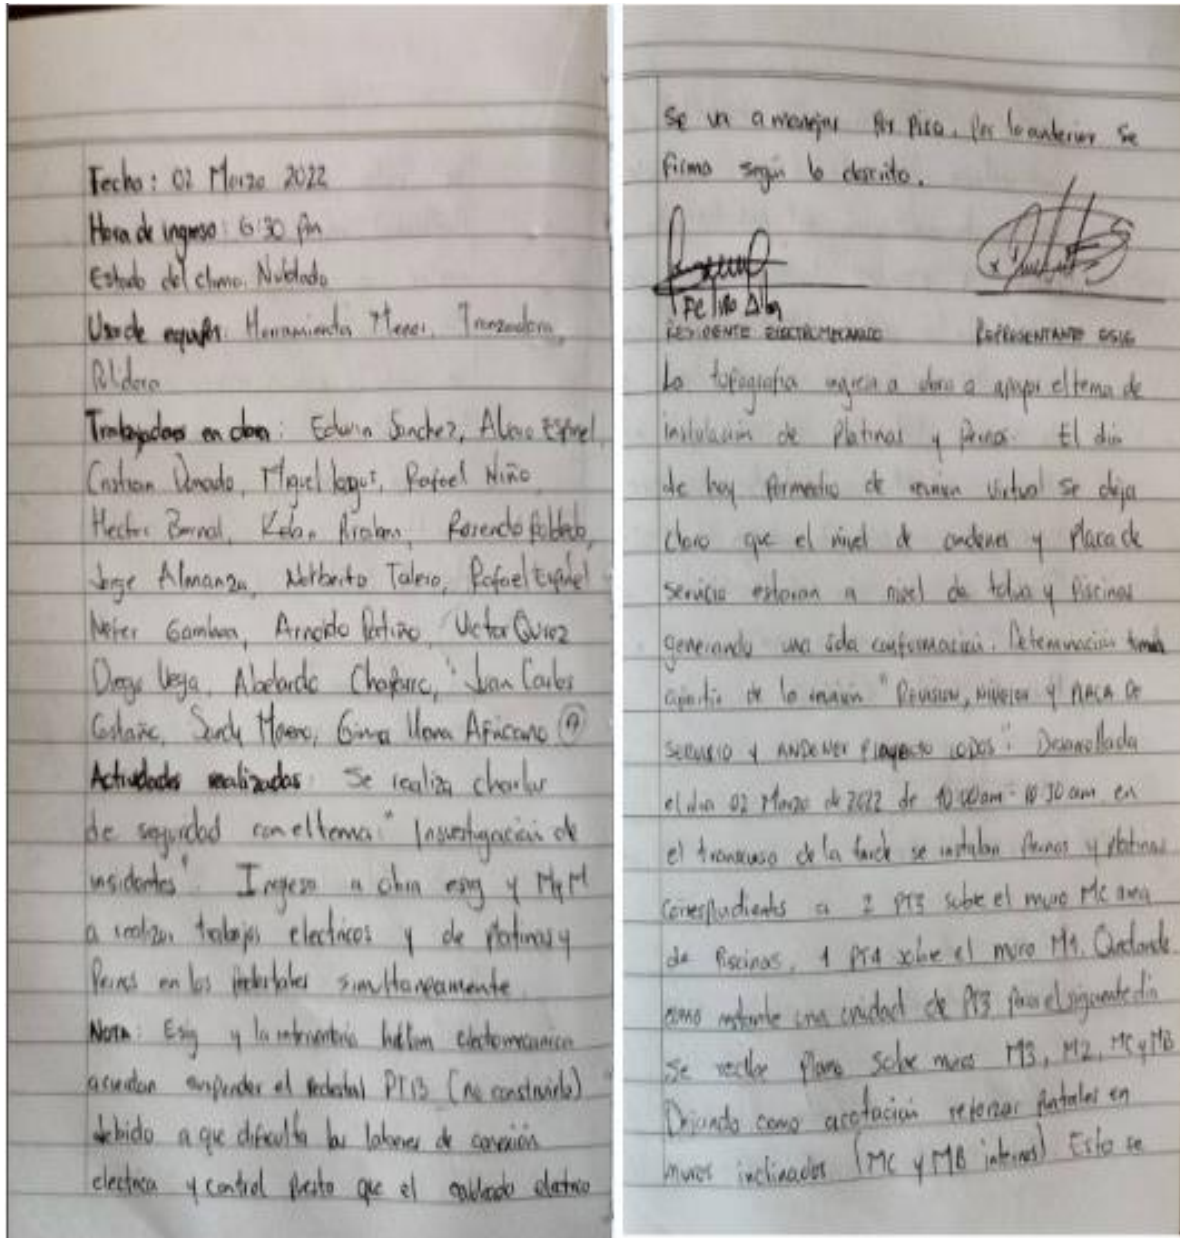 Fecha: 02 Marzo 2022
Hora de ingreso: 6:30 am
Estado del clima: Nublado
Uso de equipos: Herramienta Menor, Tronzadora,
Pulidora
Trabajadores en obra: Edwin Sanchez, Espinel,
Miguel Rafael Niño
Hector Bernal, Rosendo
Jorge Almanza, Norberto Talero, Rafael Espinel
Gamboa, Arnoldo Patiño, Victor
Diego Vega, Abelardo Chaparro, Juan Carlos
Sandy Moreno, Africano
Actividades realizadas: Se realiza charlar
de seguridad con el tema: "Investigación de
insidentes". Ingreso a obra esig y MyM
a realizar trabajos electricos y de platinas y
Pernos en los pedestales simultaneamente.
NOTA: Esig y la interventoria electromecanica
acuerdan suspender el pedestal PT13 (no construirlo)
debido a que dificulta las labores de conexión
electrica y control puesto que el cableado electrico
se va a manejar por piso. Por lo anterior se
firma según lo descrito.
RESIDENTE ELECTROMECANICO REPRESENTANTE ESIG
La topografia ingresa a obra a apoyar el tema de
instalación de Platinas y Pernos. El dia
de hoy por medio de reunion virtual se deja
claro que el nivel de andenes y placa de
servicio estaran a nivel de tolva y Piscinas
generando una sola conformación. Determinación
apartir de la reunión "REVISION, NIVELES Y PLACA DE
SERVICIO Y ANDENES PROYECTO LODOS". Desarrollada
el dia 02 Marzo de 2022 de 10:00am - 10:30 am en
el transcurso de la tarde se instalan Pernos y platinas
correspondientes a 2 PT3 sobre el muro MC area
de Piscinas, 1 PT4 sobre el muro M1. Quedando
como restante una unidad de PT3 para el siguiente dia
Se recibe Plano sobre muros M3, M2, MC y MB
Dejando como acotación reforzar puntales en
muros inclinados (MC y MB internos) Esto se